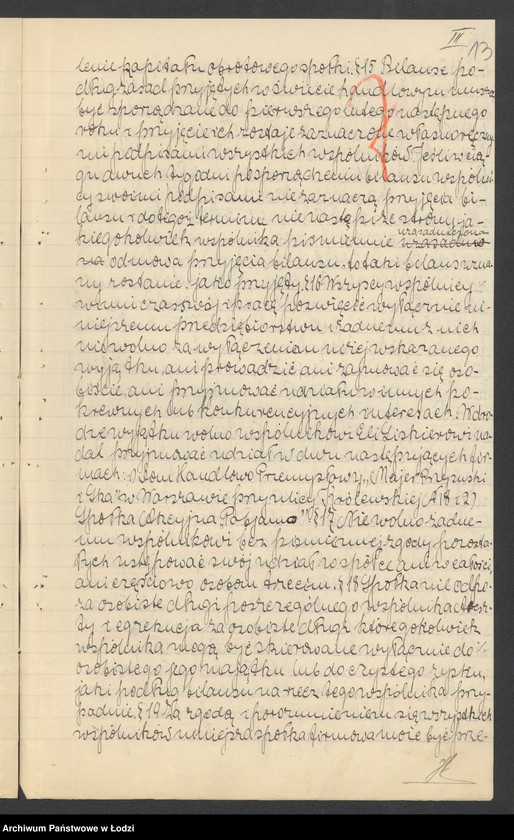 III
13
lenie kapitału obrotowego spółki. § 15 Bilanse po-
dług zasad przyjętych w świecie handlowym muszą
być sporządzane do pierwszego lutego następnego
roku i przyjęcie ich zostaje zaznaczone własnoręczny
mi podpisami wszystkich wspólników. Jeśli w cią-
gu dwuch tygodni po sporządzeniu bilansu wspólni
cy swoimi podpisami nie zaznaczą przyjęcia bi-
lansu i do tegoż terminu nie nastąpi ze strony ja-
kiegokolwiek wspólnika piśmiennie uzasadniona
na odmowa przyjęcia bilansu, to taki bilans uzna
ny zostanie jako przyjęty. § 16 Wszyscy wspólnicy
winni czas swój i pracę poświęcić wyłącznie ni-
niejszemu przedsiębiorstwu i żadnemu z nich
nie wolno za wyłączeniem niżej wskazanego
wyjątku, ani prowadzić ani zajmować się oso-
biście, ani przyjmować udziału w innych po-
krewnych lub konkurencyjnych interesach. W dro-
dze wyjątku wolno wspólnikowi Eli Liskierowi na
dal przyjmować udział w dwu następujących fir-
mach: "Dom Handlowo Przemysłowy" (Majer Przepuski
i S-ka" w Warszawie przy ulicy Królewskiej № 18 i 2)
Spółka Akcyjna "Pabjan " § 17 Nie wolno żadne-
mu wspólnikowi bez piśmiennej zgody pozosta-
łych ustępować swój udział w spółce ani w całości,
ani częściowo osobom trzecim. § 18 Spółka nie odpo-
za osobiste długi poszczególnego wspólnika
ty i egzekucja za osobiste długi któregokolwiek
wspólnika mogą być skierowane wyłącznie do
osobistego jego majątku lub do czystego zysku,
jaki podług bilansu na rzecz tego wspólnika przy-
padnie. § 19 Za zgodą i porozumieniem się wszystkich
wspólników niniejsza spółka firmowa może być prze-
Archiwum Państwowe w Łodzi